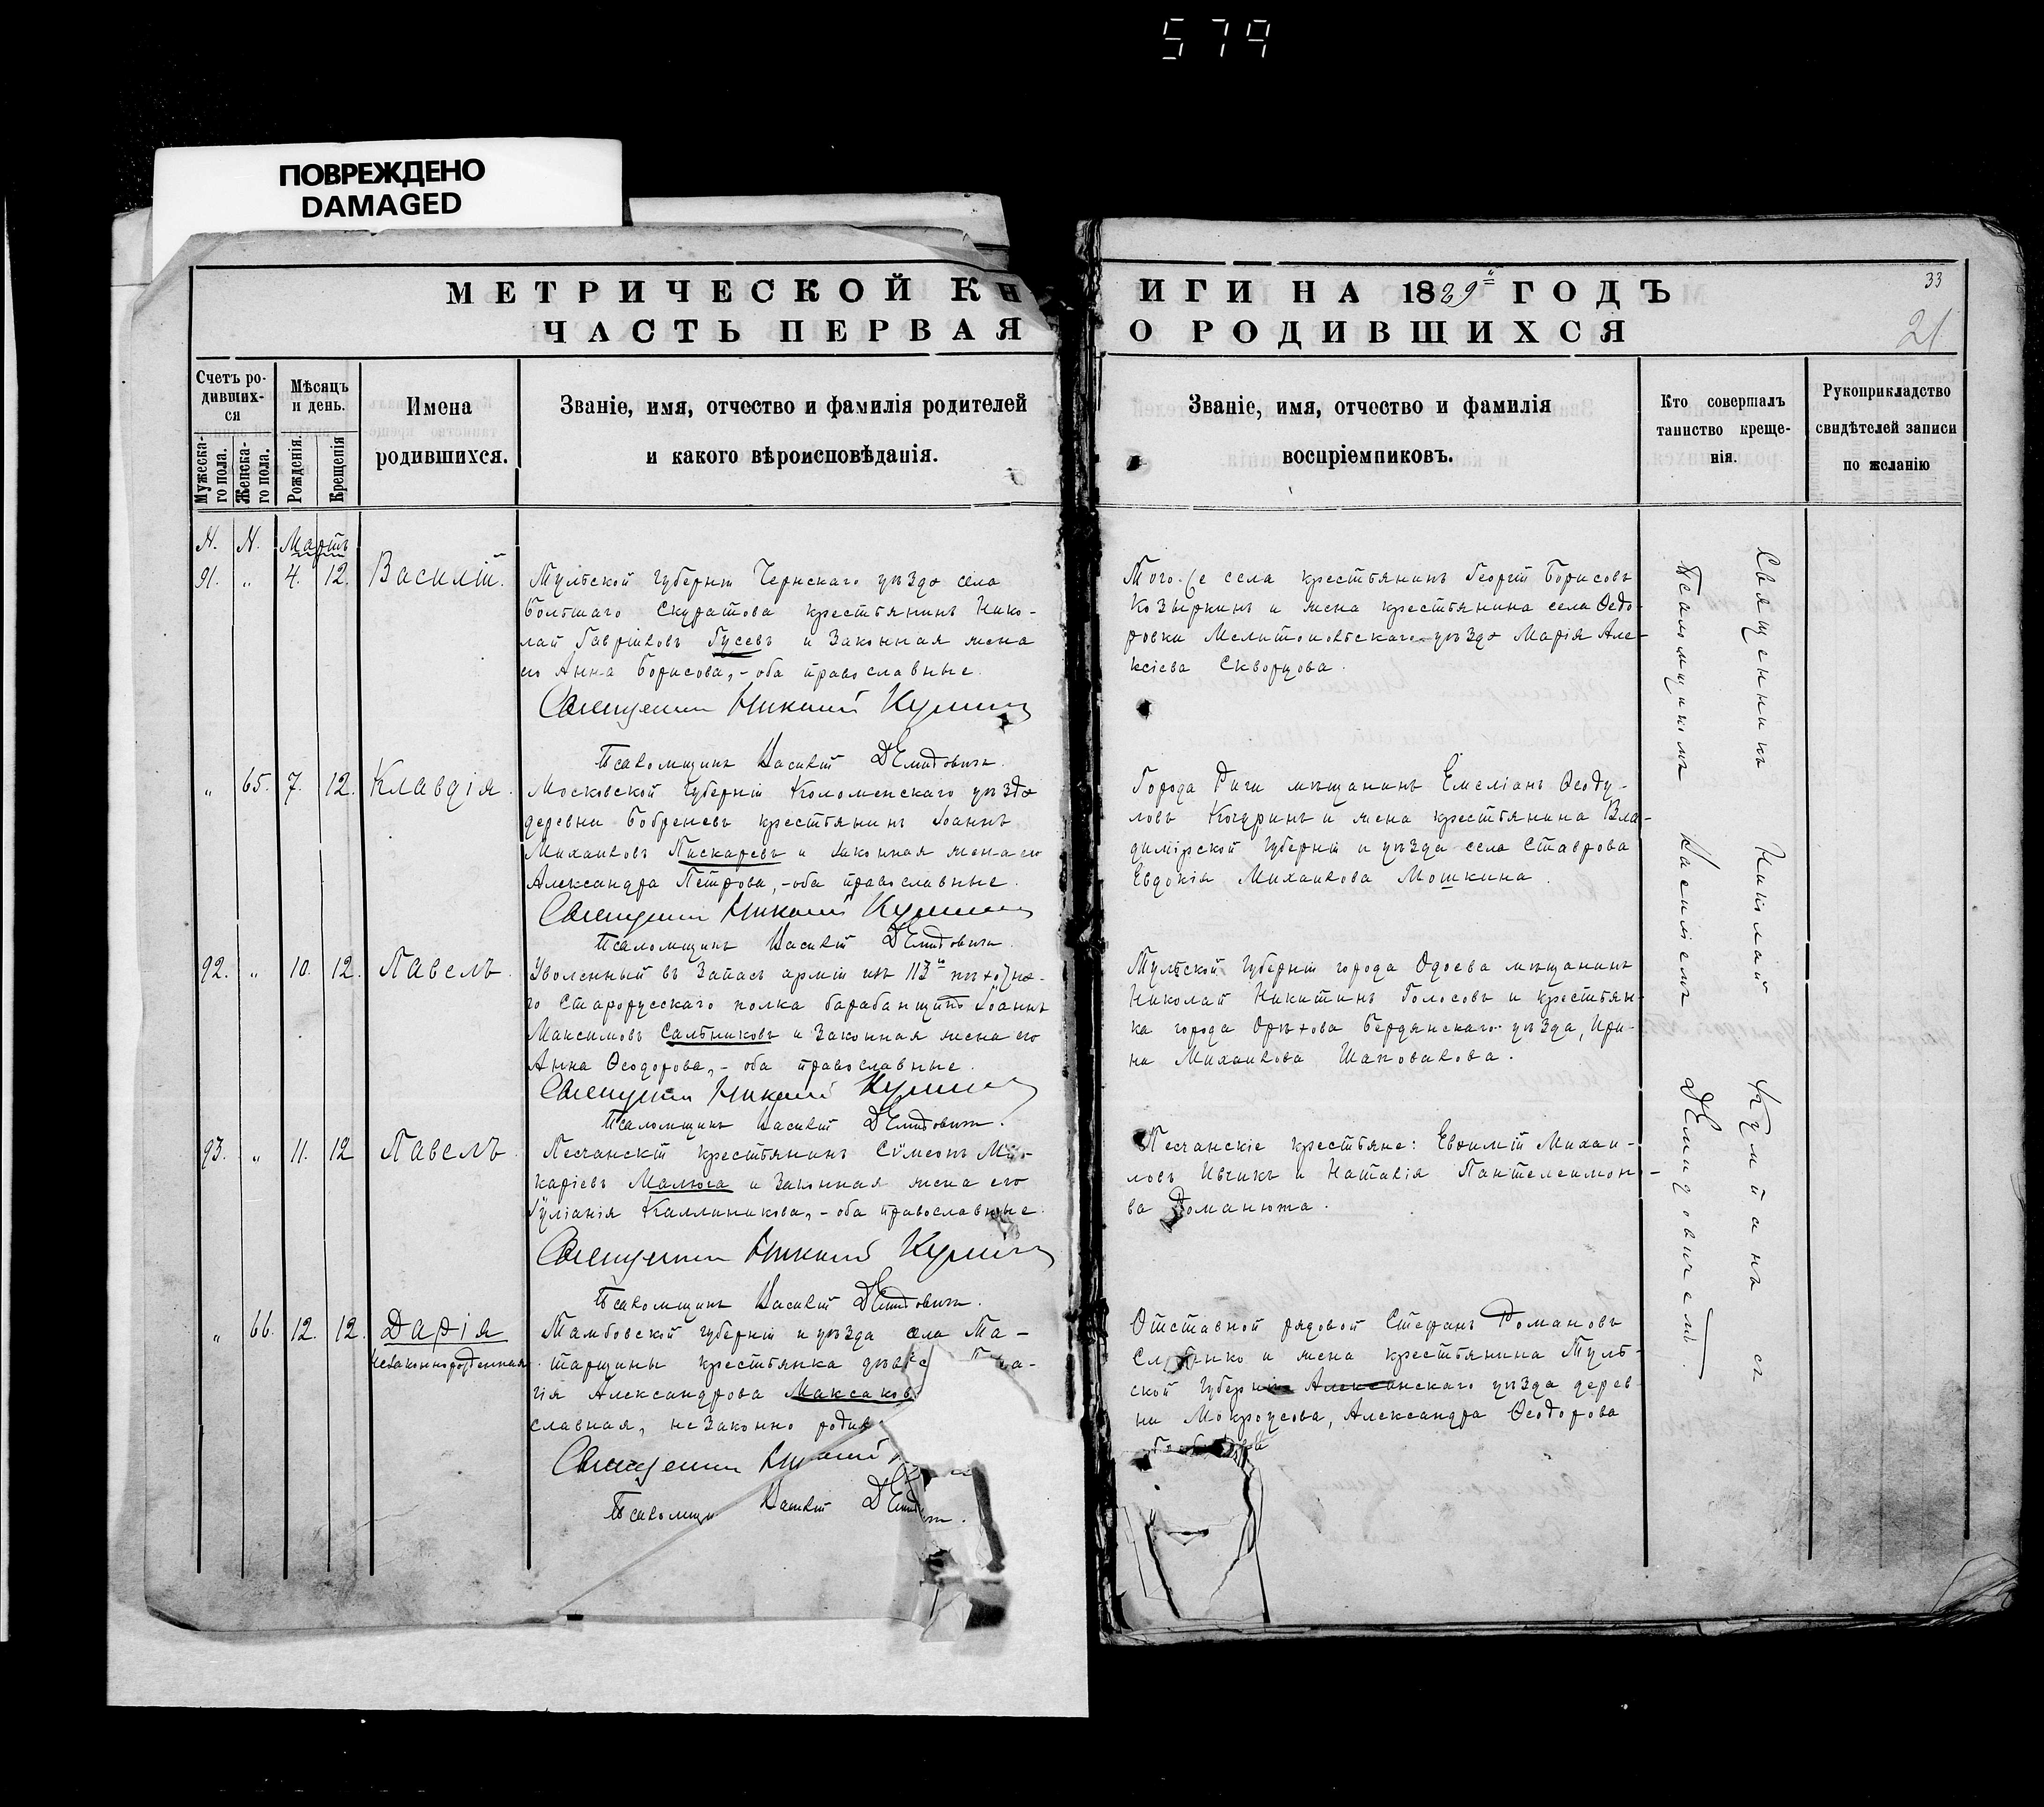 579
ПОВРЕЖДЕНО
DAMAGED
МЕТРИЧЕСКОЙ КН
ЧАСТЬ ПЕРВАЯ
Счетъ ро-
дивших-
ся
Мужеска-
го пола.
Женска-
го пола.
Мѣсяцъ
и день.
Рожденія.
Крещенія
Имена
родившихся.
Званіе, имя, отчество и фамилія родителей
и какого вѣроисповѣданія.
N. N. Мартъ
91. „ 4. 12. Василій.
Тульской губерніи Чернскаго уѣзда села
Большаго Скуратова крестьянинъ Нико-
лай Гавріиловъ Гусевъ и законная жена
его Анна Борисова, - оба православные.
Священникъ Николай
Псаломщикъ Василій Демидовичъ.
„ 65. 7. 12. Клавдія.
Московской губерніи Коломенскаго уѣзда
деревни Бобреневъ крестьянинъ Іоаннъ
Михаиловъ Пискаревъ и законная жена его
Александра Петрова, - оба православные.
Священникъ Николай
Псаломщикъ Василій Демидовичъ.
92. „ 10. 12. Павелъ.
Уволенный въ запасъ арміи изъ 113го пѣхотна-
го Старорусскаго полка барабанщикъ Іоаннъ
Максимовъ Сальниковъ и законная жена его
Анна Ѳеодорова, - оба православные.
Священникъ Николай
Псаломщикъ Василій Демидовичъ.
93. „ 11. 12 Павелъ
Песчанскій крестьянинъ Сѵмеонъ Ма-
каріевъ Малюга и законная жена его
Іуліанія Каллиникова, - оба православные.
Священникъ Николай
Псаломщикъ Василій Демидовичъ.
„ 66. 12. 12. Дарія
незаконнорожденная.
Тамбовской губерніи и уѣзда села Та-
тарщины крестьянка
гія Александрова Максаков
славная, незаконно родив
Священникъ
Псаломщи Василій
ИГИ НА 1889й ГОДЪ
О РОДИВШИХСЯ
33
21
Званіе, имя, отчество и фамилія
воспріемниковъ.
Кто совершалъ
таинство креще-
нія.
Рукоприкладство
свидѣтелей записи
по желанію
Того же села крестьянинъ Георгій Борисовъ
Козыркинъ и жена крестьянина села Ѳедо-
ровки Мелитопольскаго уѣзда Марія Але-
ксіева Скворцова.
Города Риги мѣщанинъ Емеліанъ Ѳеоду-
ловъ и жена крестьянина Вла-
димірской губерніи и уѣзда села Ставрова
Евдокія Михаилова Мошкина.
Тульской губерніи города Одоева мѣщанинъ
Николай Никитинъ Голосовъ и крестьян-
ка города Орѣхова Бердянскаго уѣзда, Ири-
на Михаилова Шаповалова.
Песчанскіе крестьяне: Евѳимій Михаи-
ловъ и Наталія Пантелеимоно-
ва Романюта.
Отставной рядовой Стефанъ Романовъ
и жена крестьянина Туль-
ской губерніи Алексинскаго уѣзда дерев-
ни Мокроусова, Александра Ѳеодорова
Священникъ Николай Купчанъ съ
Псаломщикомъ Василіемъ Демидовичемъ.